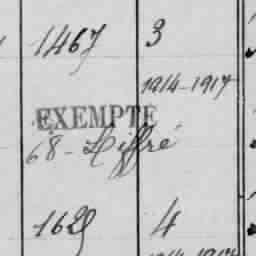 1467 3
1914-1917
EXEMPTÉ
68 - Liffré
1629 4